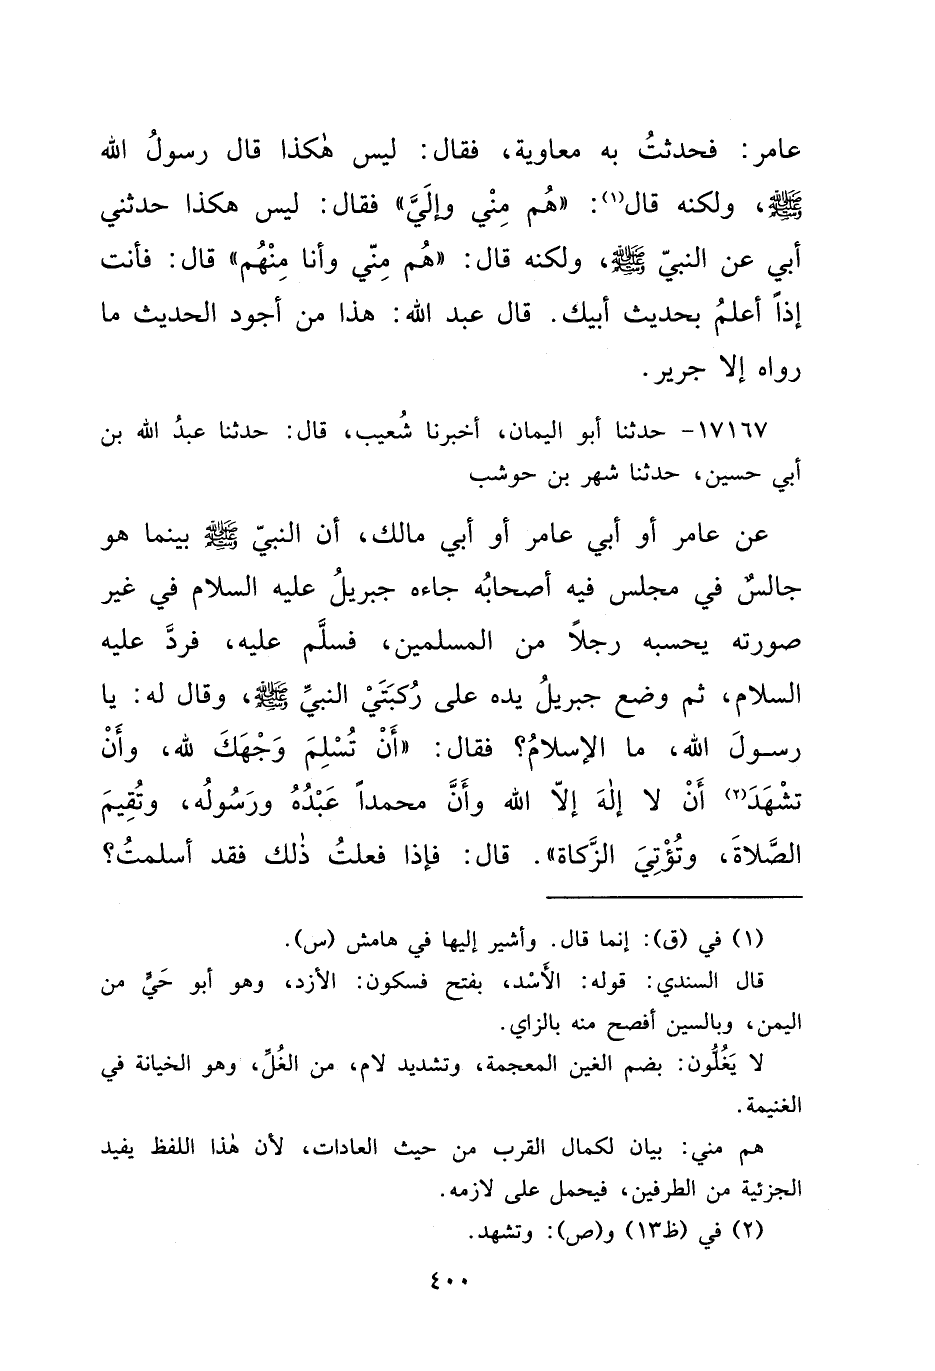 عامر: فحدثتُ به معاوية، فقال: ليس هٰكذا قال رسولُ الله
ﷺ، ولكنه قال(١): «هُم مِنْي وإلَيَّ» فقال: ليس هكذا حدثني
أبي عن النبيّ ﷺ، ولكنه قال: «هُم مِنّي وأنا مِنْهُم» قال: فأنت
إذاً أعلمُ بحديث أبيك. قال عبد الله: هذا من أجود الحديث ما
رواه إلا جرير.
١٧١٦٧- حدثنا أبو اليمان، أخبرنا شُعيب، قال: حدثنا عبدُ الله بن
أبي حسين، حدثنا شهر بن حوشب
عن عامر أو أبي عامر أو أبي مالك، أن النبيّ ﷺ بينما هو
جالسٌ في مجلس فيه أصحابُه جاءه جبريلُ عليه السلام في غير
صورته يحسبه رجلاً من المسلمين، فسلَّم عليه، فردَّ عليه
السلام، ثم وضع جبريلُ يده على رُكبَتَيْ النبيِّ ﷺ، وقال له: يا
رسولَ الله، ما الإسلامُ؟ فقال: «أَنْ تُسْلِمَ وَجْهَكَ لله، وأَنْ
تشْهَدَ(٢) أَنْ لا إلٰهَ إلاّ الله وأَنَّ محمداً عَبْدُهُ ورَسُولُه، وتُقِيمَ
الصَّلاةَ، وتُؤْتِيَ الزَّكاة». قال: فإذا فعلتُ ذٰلك فقد أسلمتُ؟
(١) في (ق): إنما قال. وأشير إليها في هامش (س).
قال السندي: قوله: الأَسْد، بفتح فسكون: الأزد، وهو أبو حَيٍّ من
اليمن، وبالسين أفصح منه بالزاي.
لا يَغُلُّون: بضم الغين المعجمة، وتشديد لام، من الغُلِّ، وهو الخيانة في
الغنيمة.
هم مني: بيان لكمال القرب من حيث العادات، لأن هٰذا اللفظ يفيد
الجزئية من الطرفين، فيحمل على لازمه.
(٢) في (ظ١٣) و(ص): وتشهد.
٤٠٠